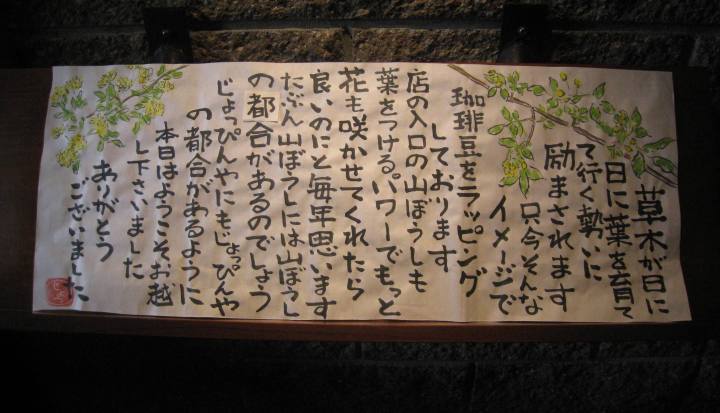 草木が日に
日に葉を育て
て行く勢いに
励まされます
只今そんな
イメージで
珈琲豆をラッピング
しております
店の入口の山ぼうしも
葉をつけるパワーでもっと
花も咲かせてくれたら
良いのにと毎年思います
たぶん山ぼうしには山ぼうし
の都合があるのでしょう
じょっぴんやにもじょっぴんや
の都合があるように
本日はようこそお越
し下さいました
ありがとう
ございました